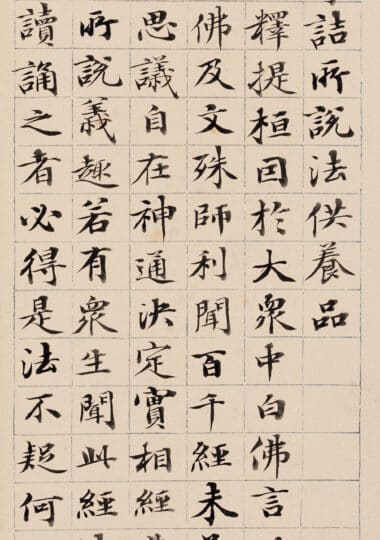 詰所說法供養品
釋提桓因於大衆中白佛言
佛及文殊師利聞百千經未
思議自在神通決定實相經
所說義趣若有衆生聞此經
讀誦之者必得是法不疑何